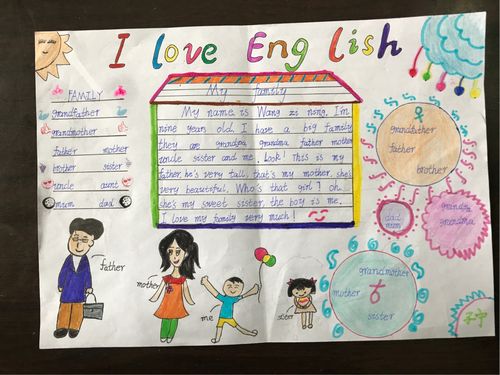 I love English
My family
My name is Wang zi ning. I'm
nine years old. I have a big family
they are grandpa grandma father mother
uncle sister and me. Look! This is my
father, he's very tall, that's my mother, she's
very beautiful. Who's that girl? oh.
she's my sweet sister, the boy is me.
I love my family very much!
FAMILY
grandfather
grandmother
father mother
brother sister
uncle aunt
mum dad
grandfather
father
brother
dad
mum
grandpa
grandma
grandmother
mother
sister
father
mother
me
sister